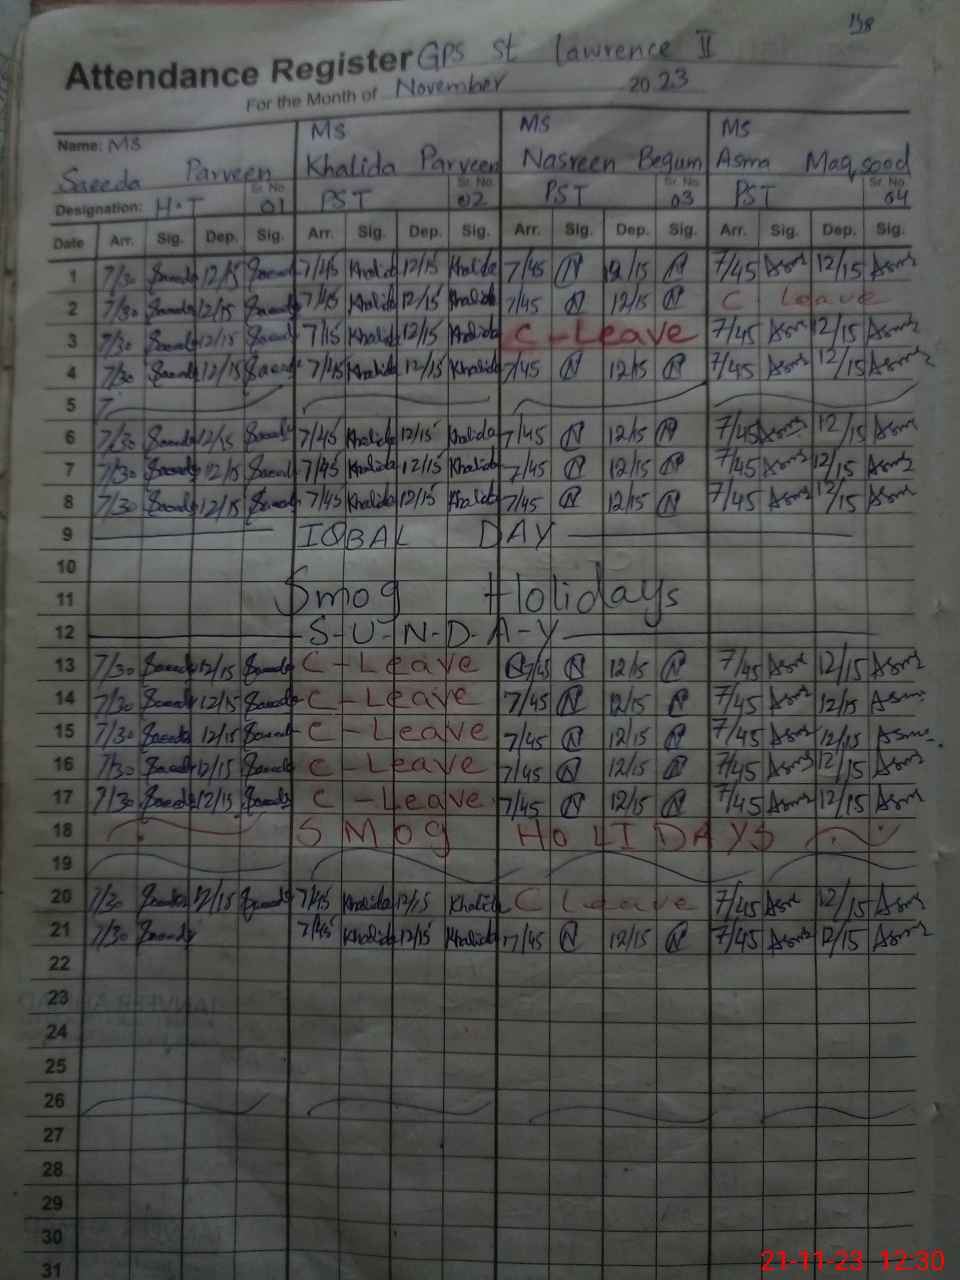 158
Attendance Register GPS St Lawrence II
For the Month of November 2023
Name: MS MS MS MS
Saeeda Parveen Khalida Parveen Nasreen Begum Asma Maqsood
Designation: H.T Sr. No. 01 PST Sr. No. 02 PST Sr. No. 03 PST Sr. No. 04
Date Arr. Sig. Dep. Sig. Arr. Sig. Dep. Sig. Arr. Sig. Dep. Sig. Arr. Sig. Dep. Sig.
1 7/30 Saeeda 12/15 Saeeda 7/45 Khalida 12/15 Khalida 7/45 N 12/15 N 7/45 Asma 12/15 Asma
2 7/30 Saeeda 12/15 Saeeda 7/45 Khalida 12/15 Khalida 7/45 N 12/15 N C - Leave
3 7/30 Saeeda 12/15 Saeeda 7/15 Khalida 12/15 Khalida C - Leave 7/45 Asma 12/15 Asma
4 7/30 Saeeda 12/15 Saeeda 7/45 Khalida 12/15 Khalida 7/45 N 12/15 N 7/45 Asma 12/15 Asma
5 7
6 7/30 Saeeda 12/15 Saeeda 7/45 Khalida 12/15 Khalida 7/45 N 12/15 N 7/45 Asma 12/15 Asma
7 7/30 Saeeda 12/15 Saeeda 7/45 Khalida 12/15 Khalida 7/45 N 12/15 N 7/45 Asma 12/15 Asma
8 7/30 Saeeda 12/15 Saeeda 7/45 Khalida 12/15 Khalida 7/45 N 12/15 N 7/45 Asma 12/15 Asma
9 IQBAL DAY
10
11 Smog Holidays
12 S-U-N-D-A-Y
13 7/30 Saeeda 12/15 Saeeda C - Leave 7/45 N 12/15 N 7/45 Asma 12/15 Asma
14 7/30 Saeeda 12/15 Saeeda C - Leave 7/45 N 12/15 N 7/45 Asma 12/15 Asma
15 7/30 Saeeda 12/15 Saeeda C - Leave 7/45 N 12/15 N 7/45 Asma 12/15 Asma
16 7/30 Saeeda 12/15 Saeeda C - Leave 7/45 N 12/15 N 7/45 Asma 12/15 Asma
17 7/30 Saeeda 12/15 Saeeda C - Leave 7/45 N 12/15 N 7/45 Asma 12/15 Asma
18 SMog HoLIDAYS
19
20 7/30 Saeeda 12/15 Saeeda 7/45 Khalida 12/15 Khalida C Leave 7/45 Asma 12/15 Asma
21 7/30 Saeeda 7/45 Khalida 12/15 Khalida 7/45 N 12/15 N 7/45 Asma 12/15 Asma
22
23
24
25
26
27
28
29
30
31
21-11-23 12:30